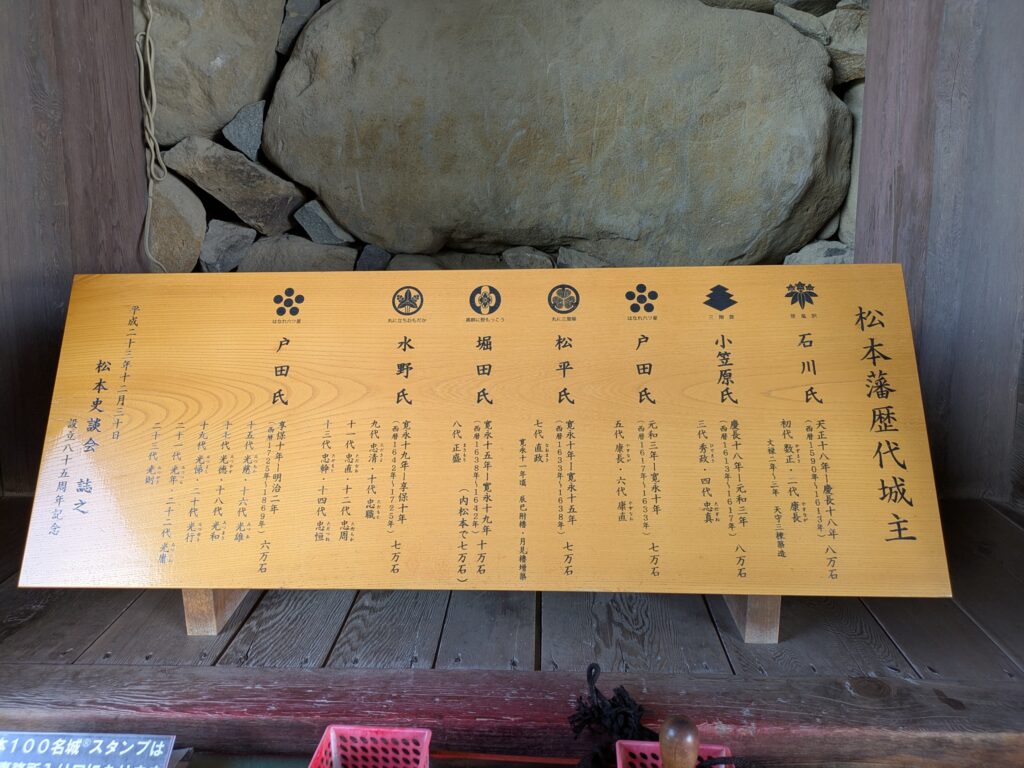 松本藩歴代城主
笹竜胆
石川氏
天正十八年ー慶長十八年 八万石
(西暦1590年~1613年)
初代 数正・二代 康長
文禄二年~三年 天守三棟築造
三階菱
小笠原氏
慶長十八年ー元和三年 八万石
(西暦1613年~1617年)
三代 秀政・四代 忠真
はなれ六ツ星
戸田氏
元和三年ー寛永十年 七万石
(西暦1617年~1633年)
五代 康長・六代 康直
丸に三葉葵
松平氏
寛永十年ー寛永十五年 七万石
(西暦1633年~1638年)
七代 直政
寛永十一年頃 辰巳附櫓・月見櫓増築
堀田氏
寛永十五年ー寛永十九年 十万石
(西暦1638年~1642年) (内松本で七万石)
八代 正盛
丸に立ちおもだか
水野氏
寛永十九年ー享保十年 七万石
(西暦1642年~1725年)
九代 忠清・十代 忠職
十一代 忠直・十二代 忠周
十三代 忠幹・十四代 忠恒
はなれ六ツ星
戸田氏
享保十年ー明治二年
(西暦1725年~1869年) 六万石
十五代 光慈・十六代 光雄
十七代 光徳・十八代 光和
十九代 光悌・二十代 光行
二十一代 光年・二十二代 光庸
二十三代 光則
平成二十三年十二月三十日
松本史談会 誌之
設立八十五周年記念
本100名城®スタンプは